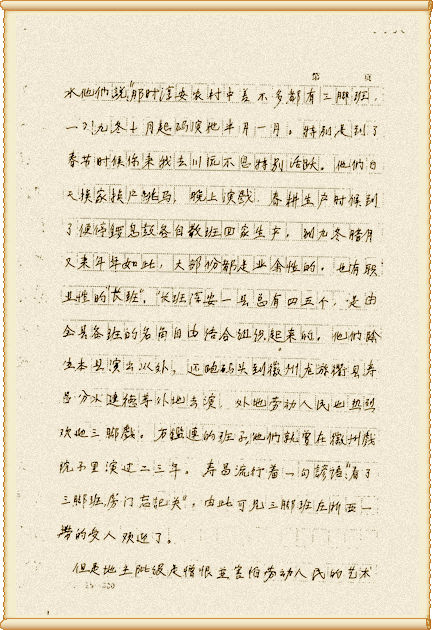 第 页
水他们说"那时淳安农村中差不多都有三脚班,
一入九冬十月起码演他半月一月。特别是到了
春节时候你来我去川流不息特别活跃。他们白
天挨家挨户跳马,晚上演戏,春耕生产时候到
了便停锣息鼓各自散班回家生产,到九冬腊月
又来年年如此,大部份都是业余性的,也有职
业性的"长班"。"长班淳安一县总有四五个,是由
全县各班的名角自由结合组织起来的。他们除
在本县演出以外,还跑码头到徽州龙游衢县寿
昌分水建德等外地去演,外地劳动人民也热烈
欢迎三脚戏。方鑑連的班子他们就曾在徽州戏
院子里演过二三年。寿昌流行着一句谚语"看了
三脚班房门忘记关",由此可见三脚班在浙西一
带的受人欢迎了。
但是地主阶级是憎恨并害怕劳动人民的艺术